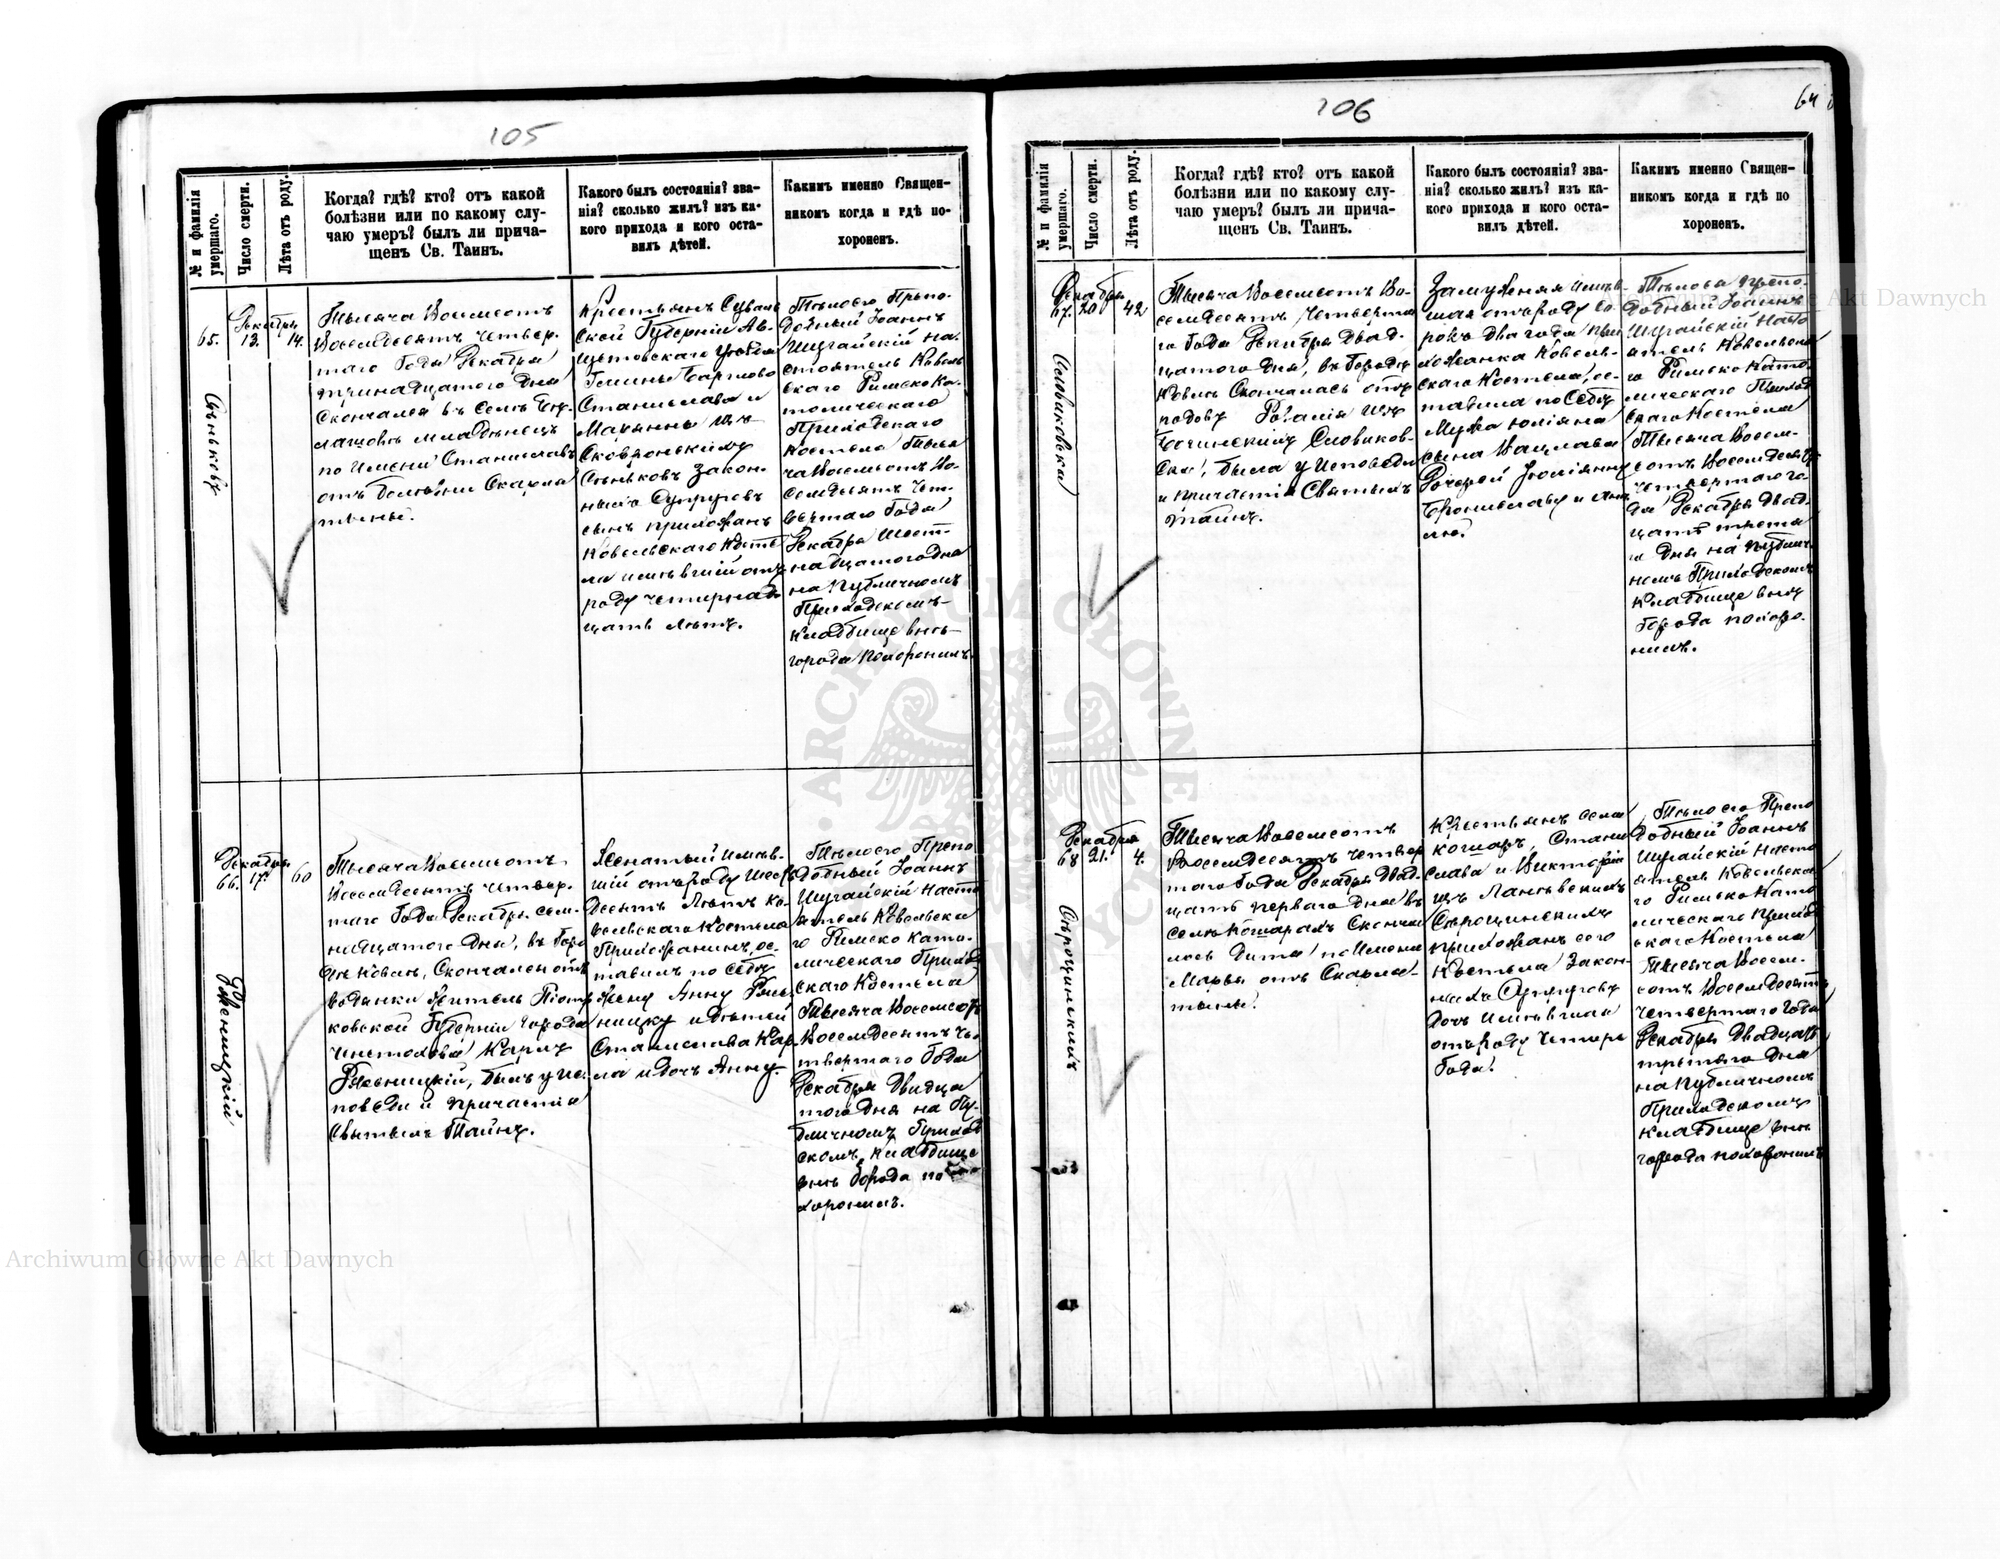 105
№ и фамилія умершаго.
Число смерти.
Лѣта отъ роду.
Когда? гдѣ? кто? отъ какой
болѣзни или по какому слу-
чаю умеръ? былъ ли прича-
щенъ Св. Таинъ.
Какого былъ состоянія? зва-
нія? сколько жилъ? изъ ка-
кого прихода и кого оста-
вилъ дѣтей.
Какимъ именно Священ-
никомъ когда и гдѣ по-
хороненъ.
65.
Декабря
13.
14.
Тысяча Восемсотъ
Восемдесятъ Четвер-
таго Года Декабря
тринадцатого Дня
Скончался въ Селѣ
младѣнецъ
по Имени Станиславъ
отъ Болѣзни Скарла
тыны.
Крестьянъ Сувалъ
ской Губерніи Ав-
густовскаго Уѣзда
Гмины
Станислава и
Маріанны изъ
Сковронскихъ
Сѣньковъ Закон-
ныхъ Супруговъ
сынъ прихожанъ
Ковельскаго Косте
ла имѣвшій отъ
роду четирнад
цать лѣтъ.
Тѣло его Препо-
добный Іоаннъ
Шугайскій На-
стоятель Ковель
скаго Римско Ка-
толическаго
Приходскаго
Костела Тыся
ча Восемсотъ Во-
семдесятъ Чет-
вертаго Года
Декабря Шест-
надцатого Дня
на Публичномъ
Приходскомъ
кладбище внѣ
города похоронилъ.
66.
Декабря
17.
60
Рженницкій
Тысяча Восемсотъ
Восемдесятъ Четвер-
таго Года Декабря сем-
надцатого Дня, въ Горо
дѣ Ковлѣ, Скончался отъ
водянки житель Піотр
ковской Губерніи Города
Ченстохова Карлъ
Рженницкій, былъ у Ис-
поведи и причастія
Святыхъ Тайнъ.
Женатый имѣв-
шій отъ роду Шесть
десятъ Лѣтъ Ко-
вельскаго Костела
Прихожанинъ, ос-
тавилъ по Себѣ
жену Анну Ржен-
ницку и Дѣтей
Станислава Кар-
ла и дочь Анну.
Тѣло его Препо
добный Іоаннъ
Шугайскій Насто
ятель Ковельска
го Римско Като-
лическаго Приход
скаго Костела
Тысяча Восемсотъ
Восемдесятъ Че-
твертаго Года
Декабря Двадца
того Дня на Пу-
бличномъ Приход
скомъ кладбище
внѣ Города по
хоронилъ.
106
64
№ и фамилія умершаго.
Число смерти.
Лѣта отъ роду.
Когда? гдѣ? кто? отъ какой
болѣзни или по какому слу-
чаю умеръ? былъ ли прича-
щенъ Св. Таинъ.
Какого былъ состоянія? зва-
нія? сколько жилъ? изъ ка-
кого прихода и кого оста-
вилъ дѣтей.
Какимъ именно Священ-
никомъ когда и гдѣ по
хороненъ.
Декабря
67.
20
42
Словиковска
Тысяча Восемсотъ Во-
семдесятъ Четверта
го Года Декабря Двад-
цатого Дня, въ Городѣ
Ковлѣ Скончалась отъ
родовъ Розалія изъ
Словиков-
ска, была у Исповеди
и причастія Святыхъ
Тайнъ.
Замужняя имѣв-
шая отъ роду Со-
рокъ два года При
хожанка Ковель-
скаго Костела, ос-
тавила по Себѣ
Мужа Юліяна
сына Вацлава
Дочерей Юліянну
Брониславу и
лю.
Тѣло ея Препо-
добный Іоаннъ
Шугайскій Насто
ятель Ковельска
го Римско Като-
лическаго Приход
скаго Костела
Тысяча Восем-
сотъ Восемдесятъ
Четвертаго Го-
да Декабря Двад-
цать третя
го Дня на Публич-
номъ Приходскомъ
Кладбище внѣ
Города похоро-
нилъ.
Декабря
68
21.
4.
Сѣрочинскихъ
Тысяча Восемсотъ
Восемдесятъ Четвер
таго Года Декабря Двад-
цать перваго Дня въ
селѣ Кошарахъ Сконча
лось Дитя по Имени
Марья отъ Скарла-
тыны.
Крестьянъ села
Кошаръ, Стани
слава и Викторіи
изъ Лансвскихъ
Сѣрочинскихъ
прихожанъ сего
Костела Закон-
ныхъ Супруговъ
дочь имѣвшая
отъ роду Четыре
Года.
Тѣло его Препо
добный Іоаннъ
Шугайскій Насто
ятель Ковельска
го Римско Като-
лическаго Приход
скаго Костела
Тысяча Восем-
сотъ Восемдесятъ
Четвертаго Года
Декабря Двадцать
третьяго Дня
на Публичномъ
Приходскомъ
Кладбище внѣ
города похоронилъ
Archiwum Główne Akt Dawnych
Archiwum Główne Akt Dawnych
ARCHIWUM GŁÓWNE